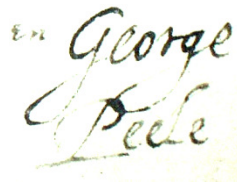 en George
Peele